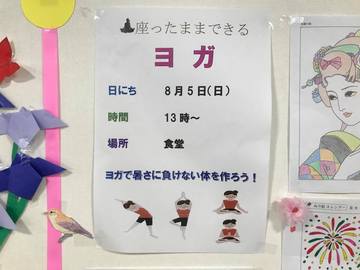 座ったままできる
ヨガ
日にち 8月5日(日)
時間 13時～
場所 食堂
ヨガで暑さに負けない体を作ろう！